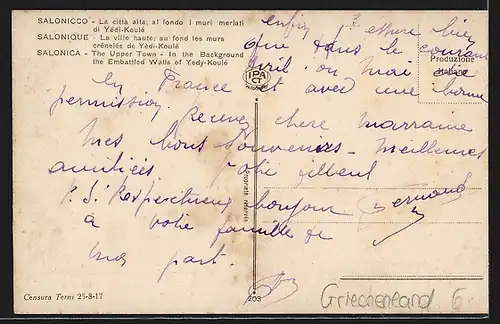 SALONICCO - La città alta; al fondo i muri merlati
di Yédi-Koulé
SALONIQUE - La ville haute; au fond les murs
crénelée de Yédi-Koulé
SALONICA - The Upper Town - In the Background
the Embattled Walls of Yedy-Koulé
enfin j'espere bien
que dans le courant
avril ou mai
IPA
CT
Produzione
Italiana
en France et avec une bonne
permission. Recevez chere marraine
mes bons souvenirs - meilleures
amitiés votre filleul
P.S. Respectueux bonjour Fernand
à votre famille de
ma part.
Proprietà riservata
Censura Terni 25-8-17
203
Griechenland 6